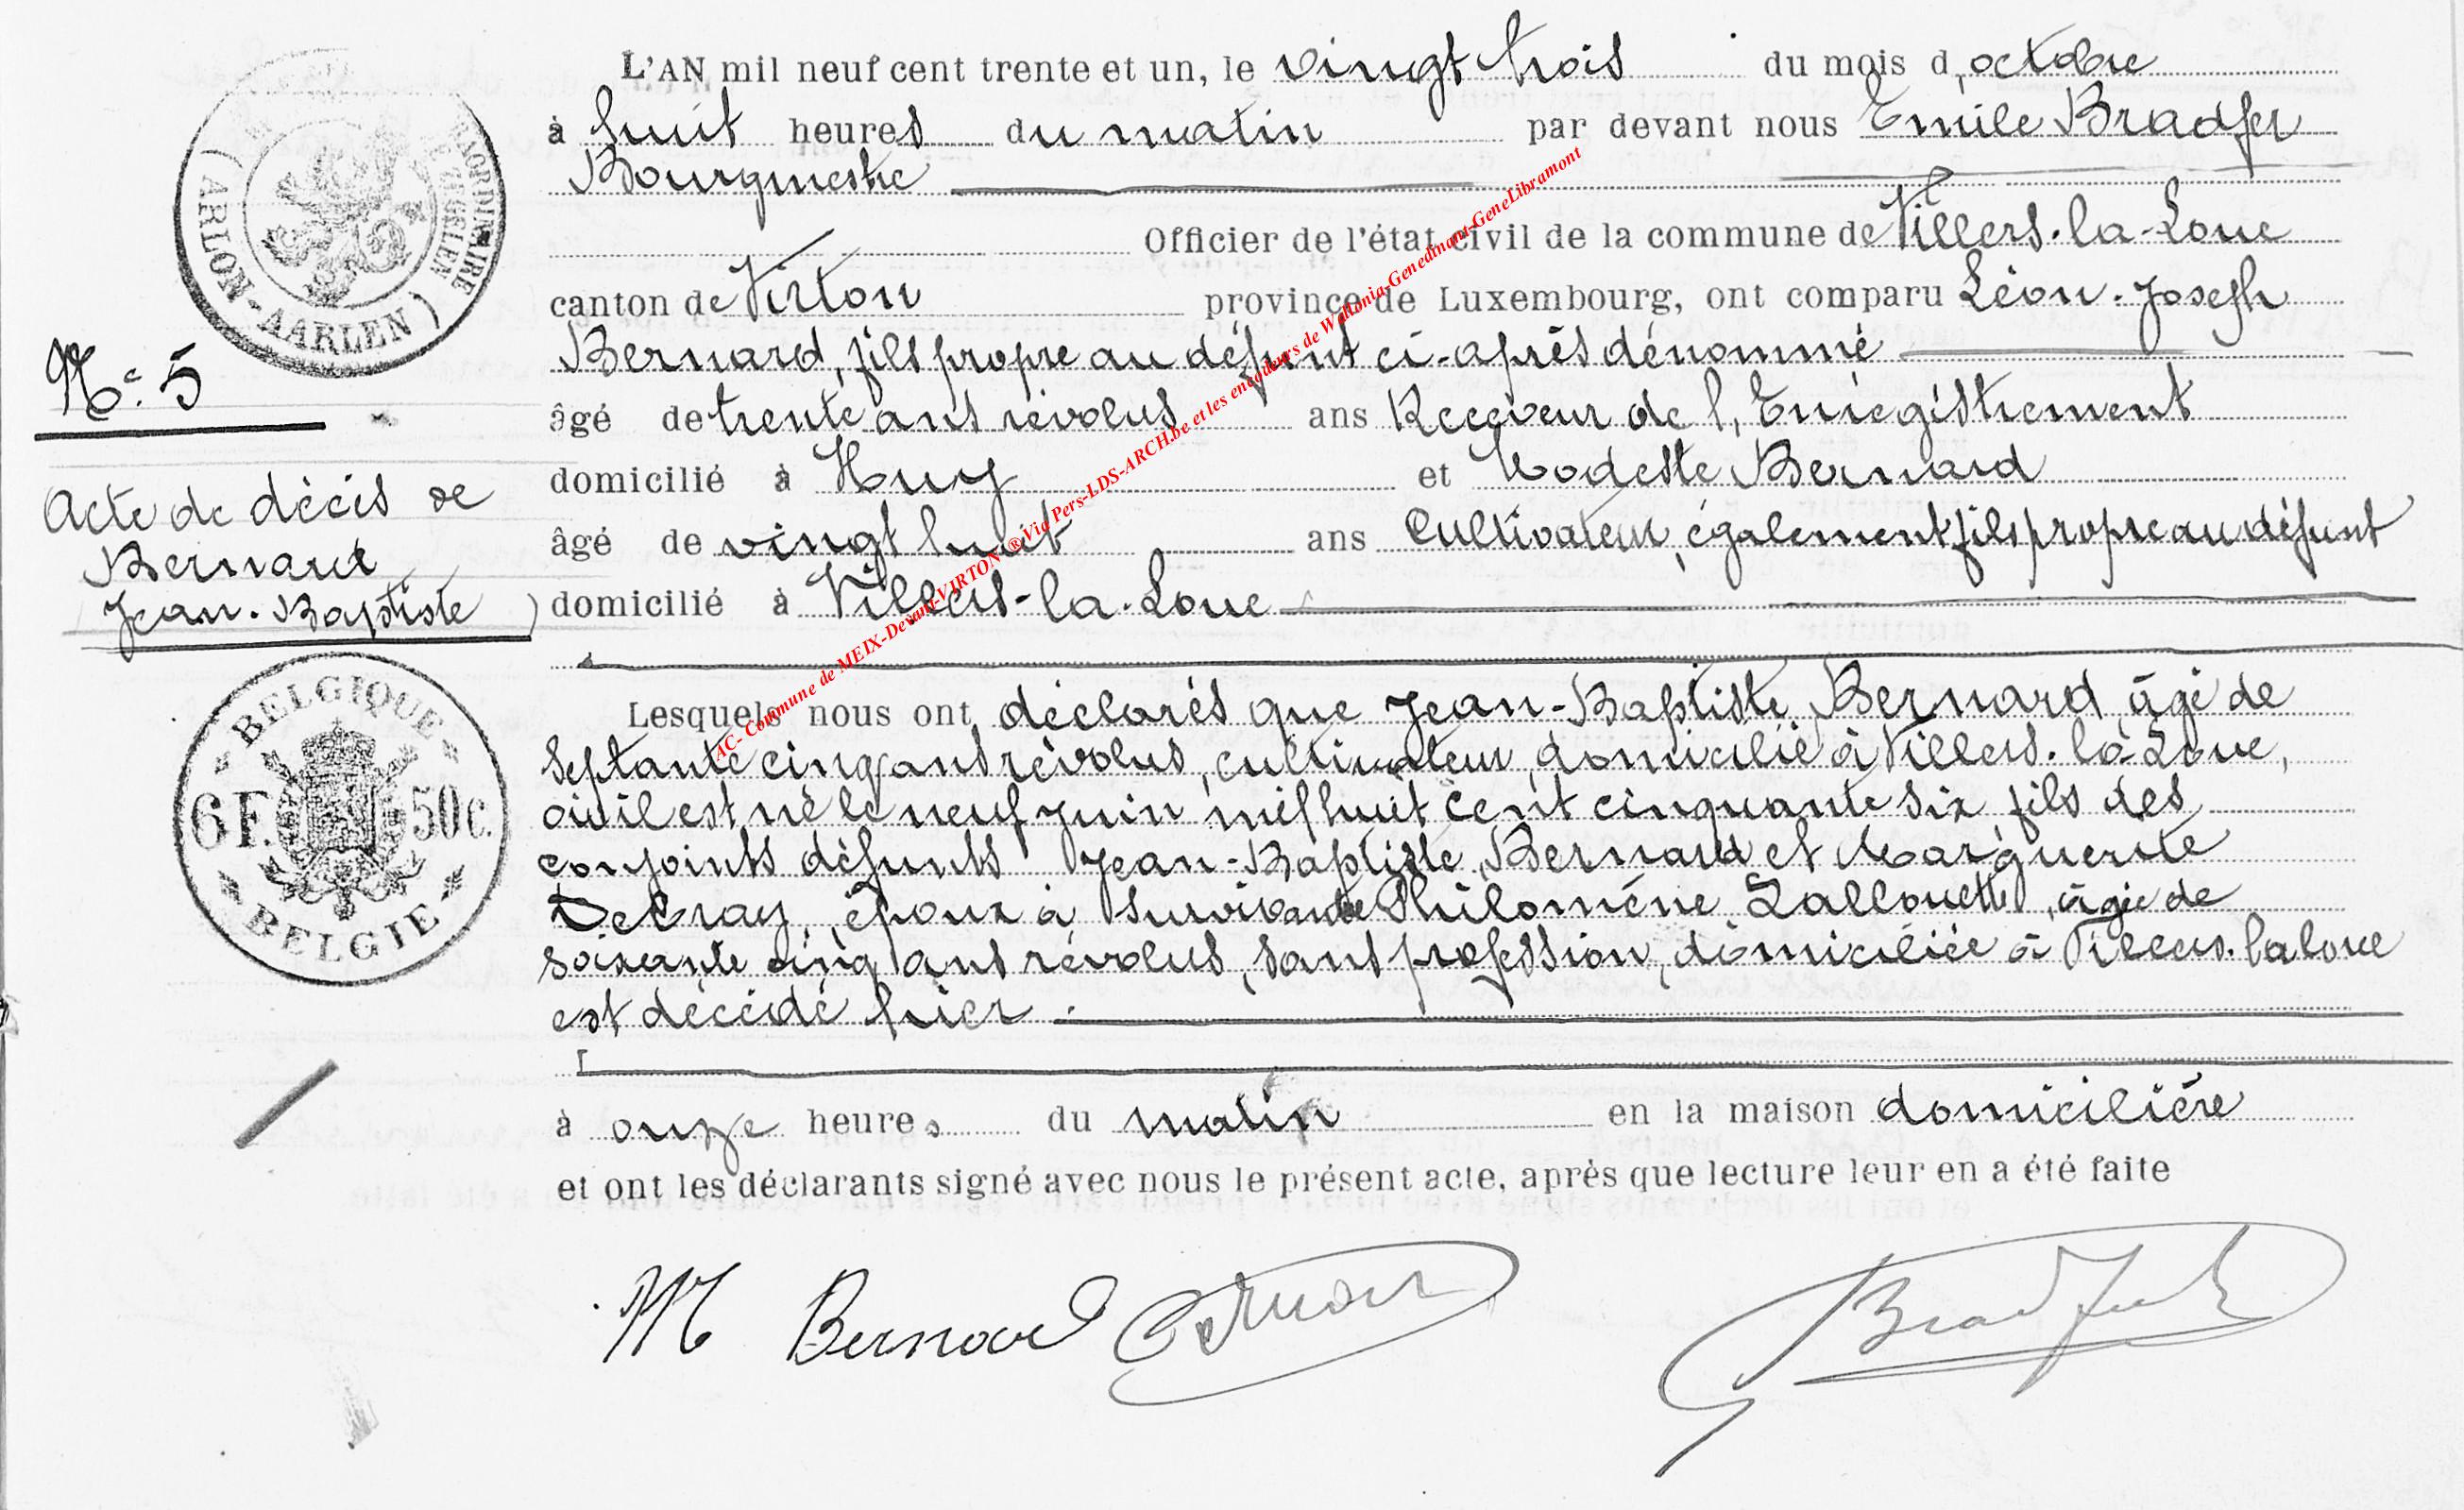 L'AN mil neuf cent trente et un, le vingt trois du mois d'octobre
à huit heures du matin par devant nous Emile Bradfer
Bourgmestre
Officier de l'état civil de la commune de Villers-la-Loue
canton de Virton province de Luxembourg, ont comparu Léon-Joseph
Bernard, fils propre au défunt ci-après dénommé
âgé de trente ans révolus ans Receveur de l'Enregistrement
domicilié à Huy et Modeste Bernard
âgé de vingt huit ans Cultivateur, également fils propre au défunt
domicilié à Villers-la-Loue
Lesquels nous ont déclarés que Jean-Baptiste Bernard âgé de
septante cinq ans révolus, cultivateur, domicilié à Villers-la-Loue,
où il est né le neuf juin mil huit cent cinquante six, fils des
conjoints défunts Jean-Baptiste Bernard et Marguerite
époux à survivante Philomène Lallouette, âgée de
soixante cinq ans révolus, sans profession, domiciliée à Villers-la-loue
est décédé hier
à onze heures du matin en la maison domicilière
et ont les déclarants signé avec nous le présent acte, après que lecture leur en a été faite
M Bernard Bernard Bradfer
(ARLON-AARLEN)
N° 5
Acte de décès de
Bernard
Jean-Baptiste
BELGIQUE
6 F. 50 c.
BELGIE
AC- Commune de MEIX-Devant-VIRTON ® Via Pers-LDS-ARCH.be et les encodeurs de Wallonia-Genedinant-GeneLibramont